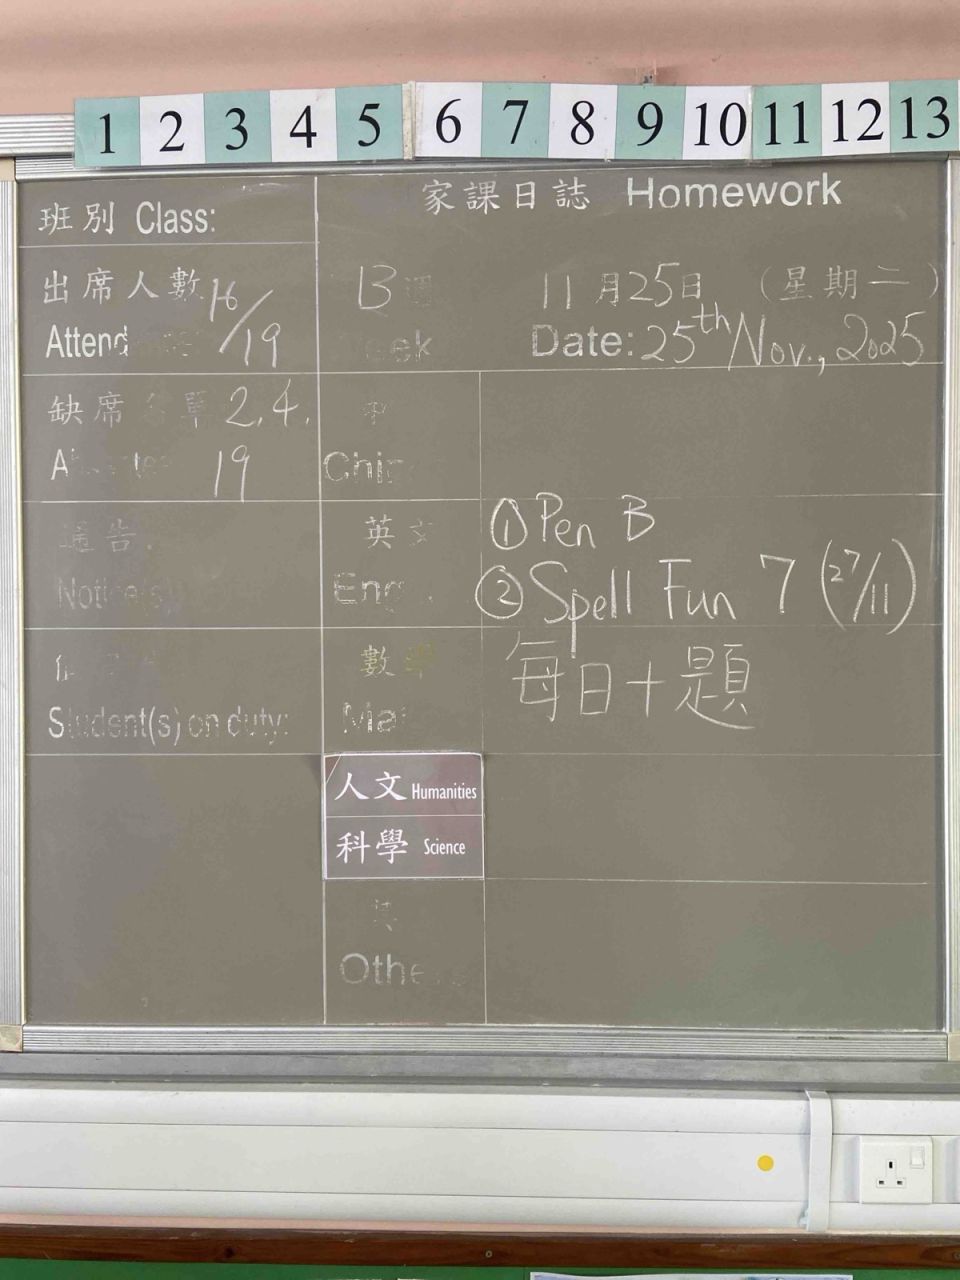 1 2 3 4 5 6 7 8 9 10 11 12 13
班別 Class:
家課日誌 Homework
出席人數 16/19
Attend
B週
eek
11月25日 (星期二)
Date: 25th Nov., 2025
缺席 單 2, 4,
A 19
Chin
通告:
Notice(s)
英文
Eng
① Pen B
② Spell Fun 7 (27/11)
Student(s) on duty:
數學
Ma
每日十題
人文 Humanities
科學 Science
其
Othe